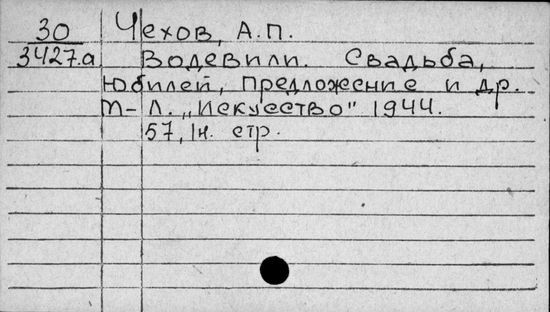 30 Чехов, А.П.
3427.а Водевили. Свадьба,
Юбилей, Предложение и др.
М-Л. „Искусство" 1944.
57, 1н. стр.